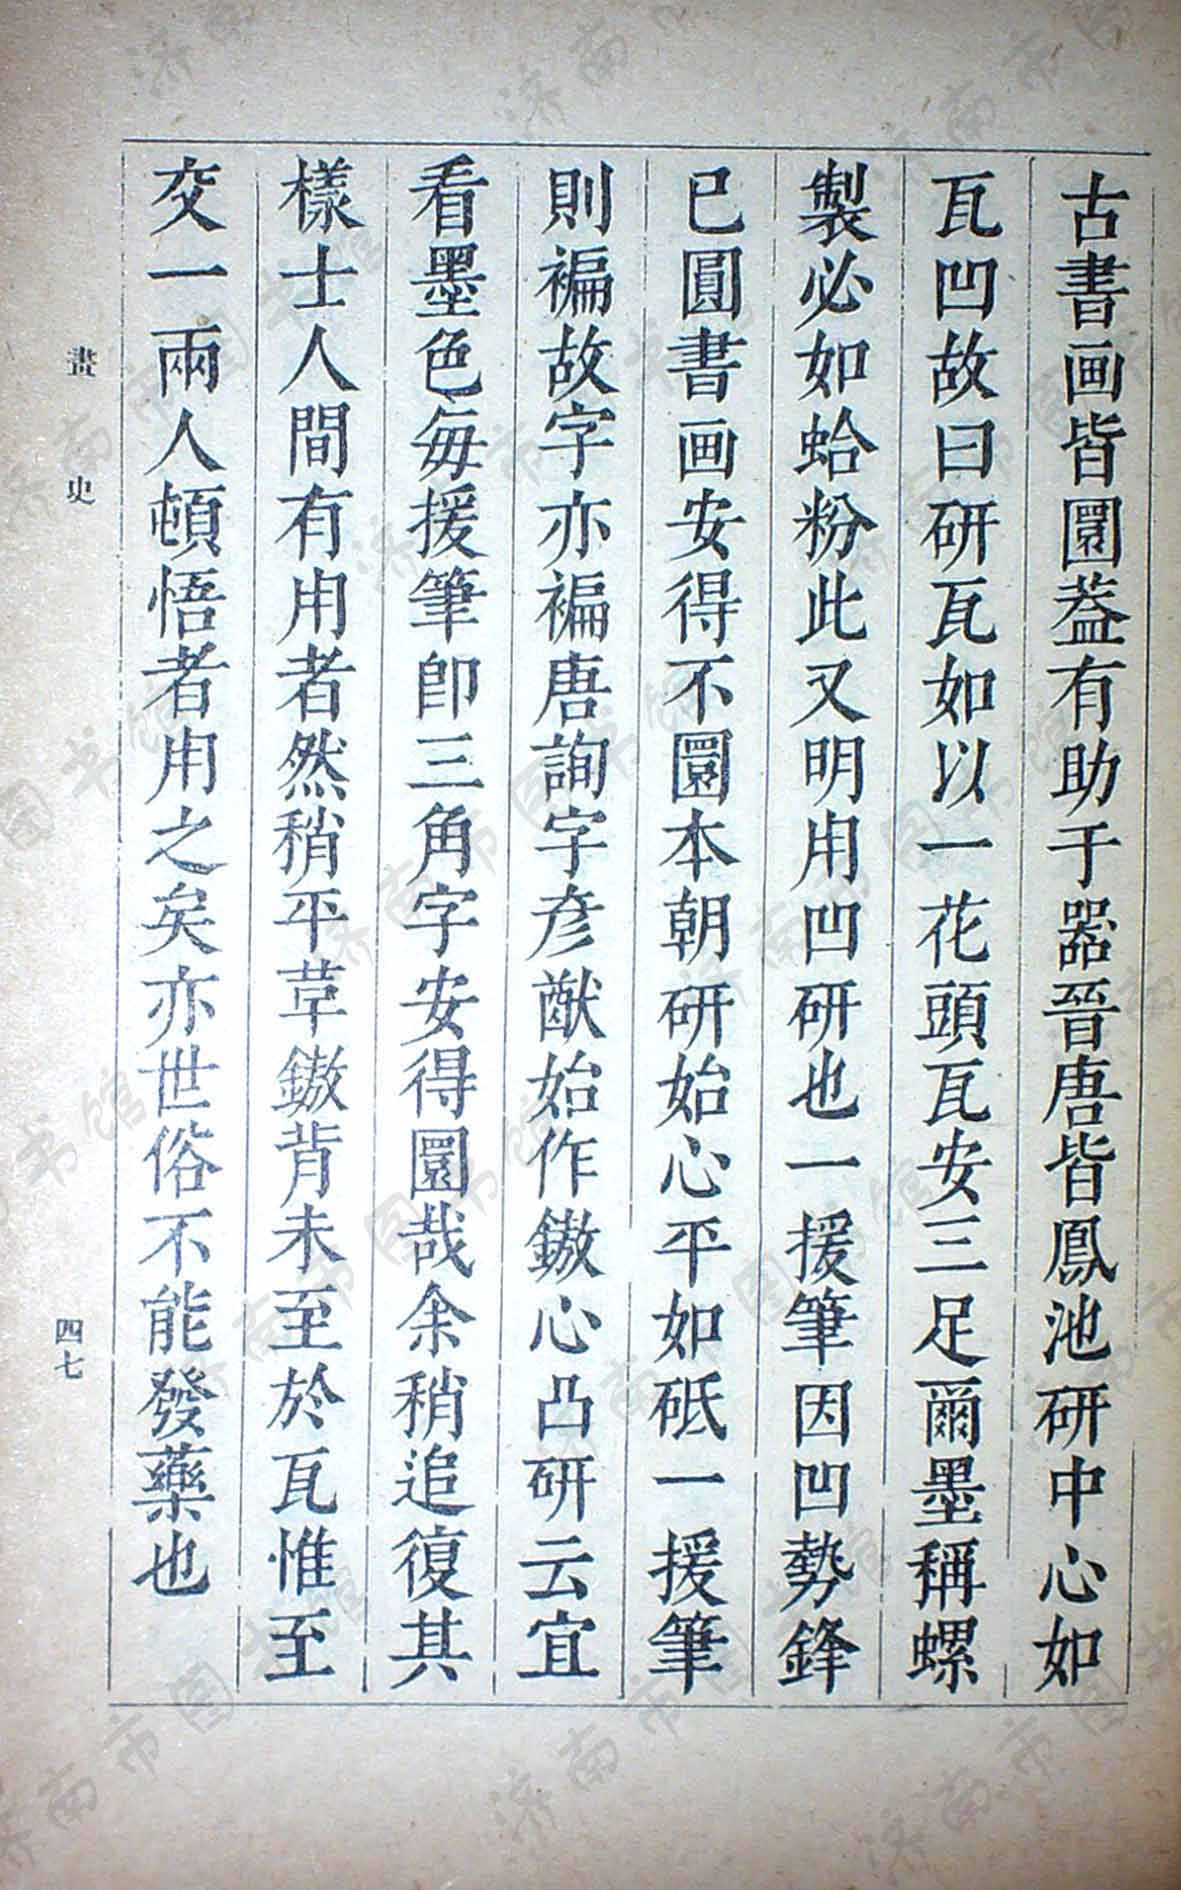 古書画皆圜葢有助于器晉唐皆鳳池研中心如
瓦凹故曰研瓦如以一花頭瓦安三足爾墨稱螺
製必如蛤粉此又明用凹研也一援筆因凹勢鋒
已圓書画安得不圜本朝研始心平如砥一援筆
則褊故字亦褊唐詢字彦猷始作鏊心凸研云宜
看墨色每援筆卽三角字安得圜哉余稍追復其
樣士人間有用者然稍平革鏊背未至於瓦惟至
交一兩人頓悟者用之矣亦世俗不能發藥也
畫史
四七
济南市图书馆